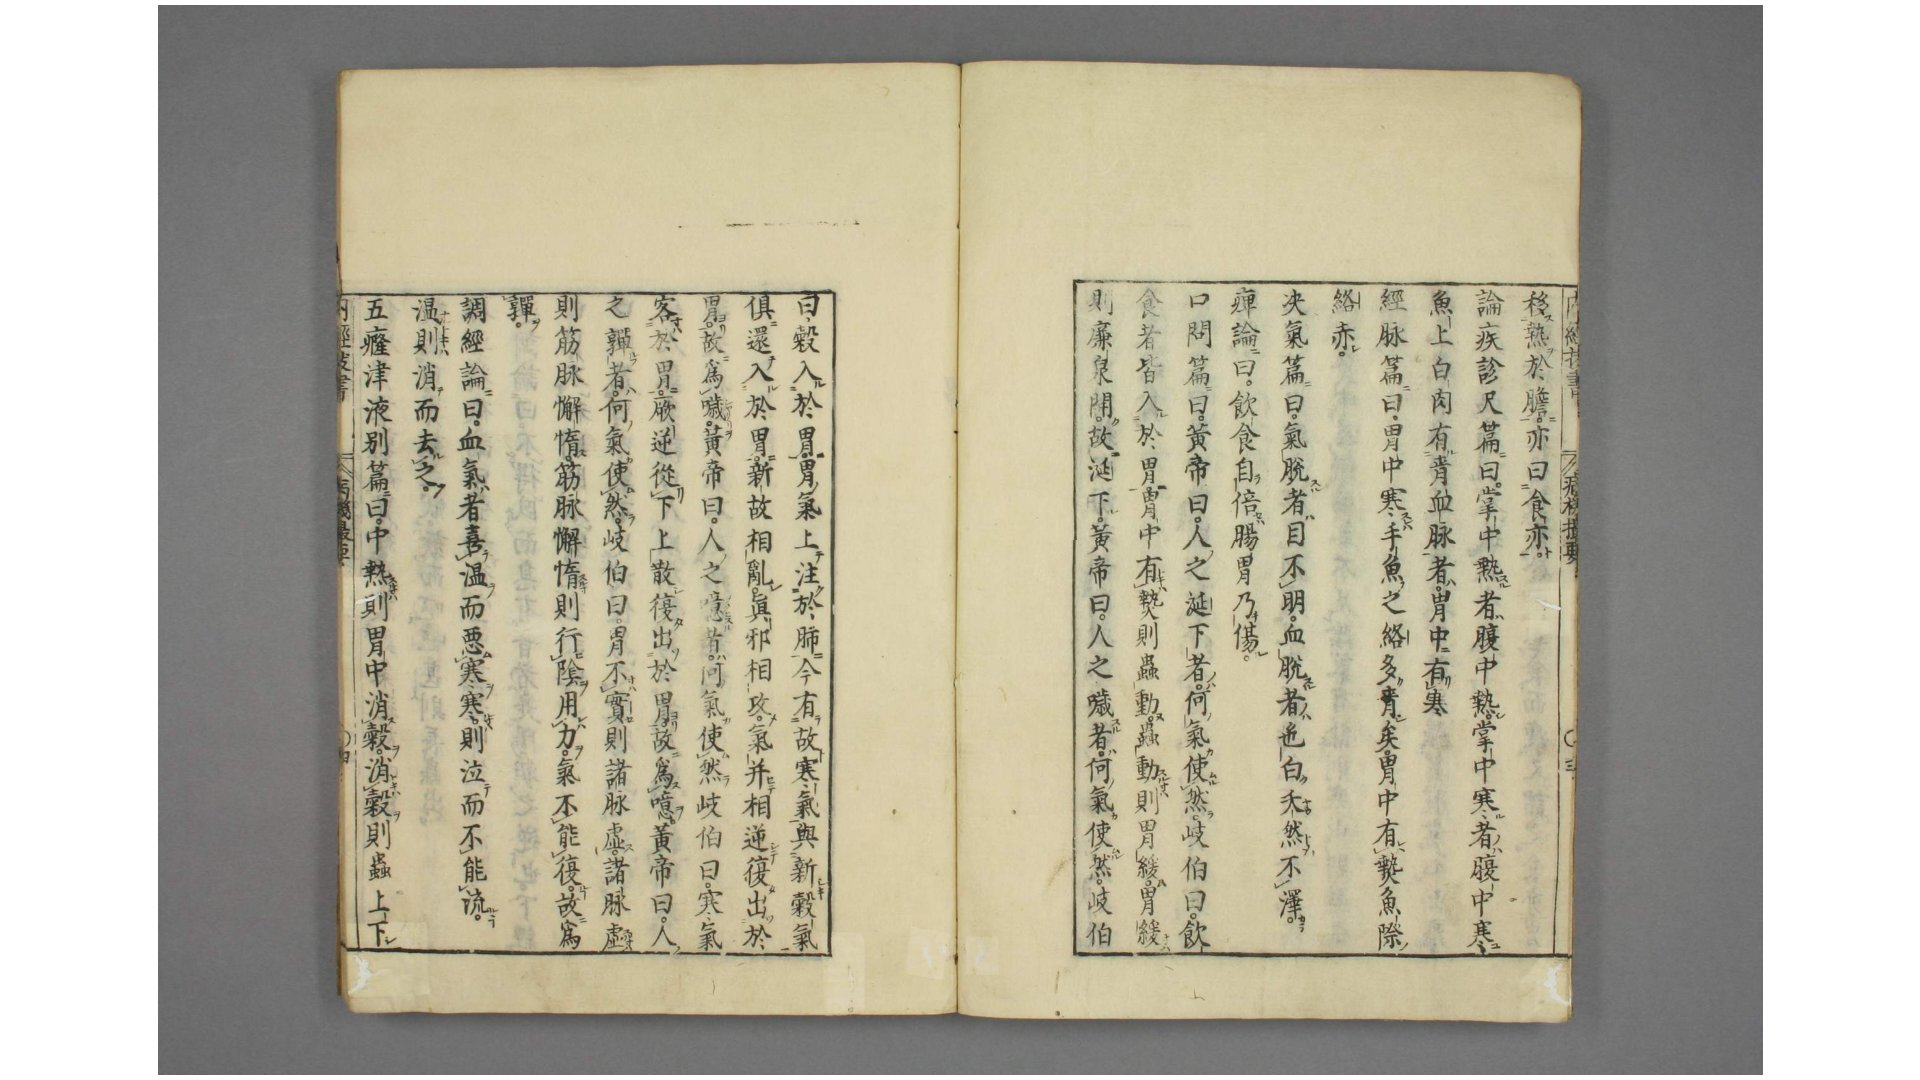 移熱於膽亦曰食亦
論疾診尺篇曰掌中熱者腹中熱掌中寒者腹中寒
魚上白肉有青血脉者胃中有寒
經脉篇曰胃中寒手魚之絡多青矣胃中有熱魚際
絡赤
决氣篇曰氣脫者目不明血脫者色白夭然不澤
痺論曰飲食自倍腸胃乃傷
口問篇曰黃帝曰人之涎下者何氣使然岐伯曰飲
食者皆入於胃胃中有熱則蟲動蟲動則胃緩胃緩
則廉泉開故涎下黃帝曰人之噦者何氣使然岐伯
曰穀入於胃胃氣上注於肺今有故寒氣與新穀氣
俱還入於胃新故相亂眞邪相攻氣并相逆復出於
胃故爲噦黃帝曰人之噫者何氣使然岐伯曰寒氣
客於胃厥逆從下上散復出於胃故爲噫黃帝曰人
之嚲者何氣使然岐伯曰胃不實則諸脉虛諸脉虛
則筋脉懈惰筋脉懈惰則行陰用力氣不能復故爲
嚲
調經論曰血氣者喜温而惡寒寒則泣而不能流
温則消而去之
五癃津液别篇曰中熱則胃中消穀消穀則蟲上下